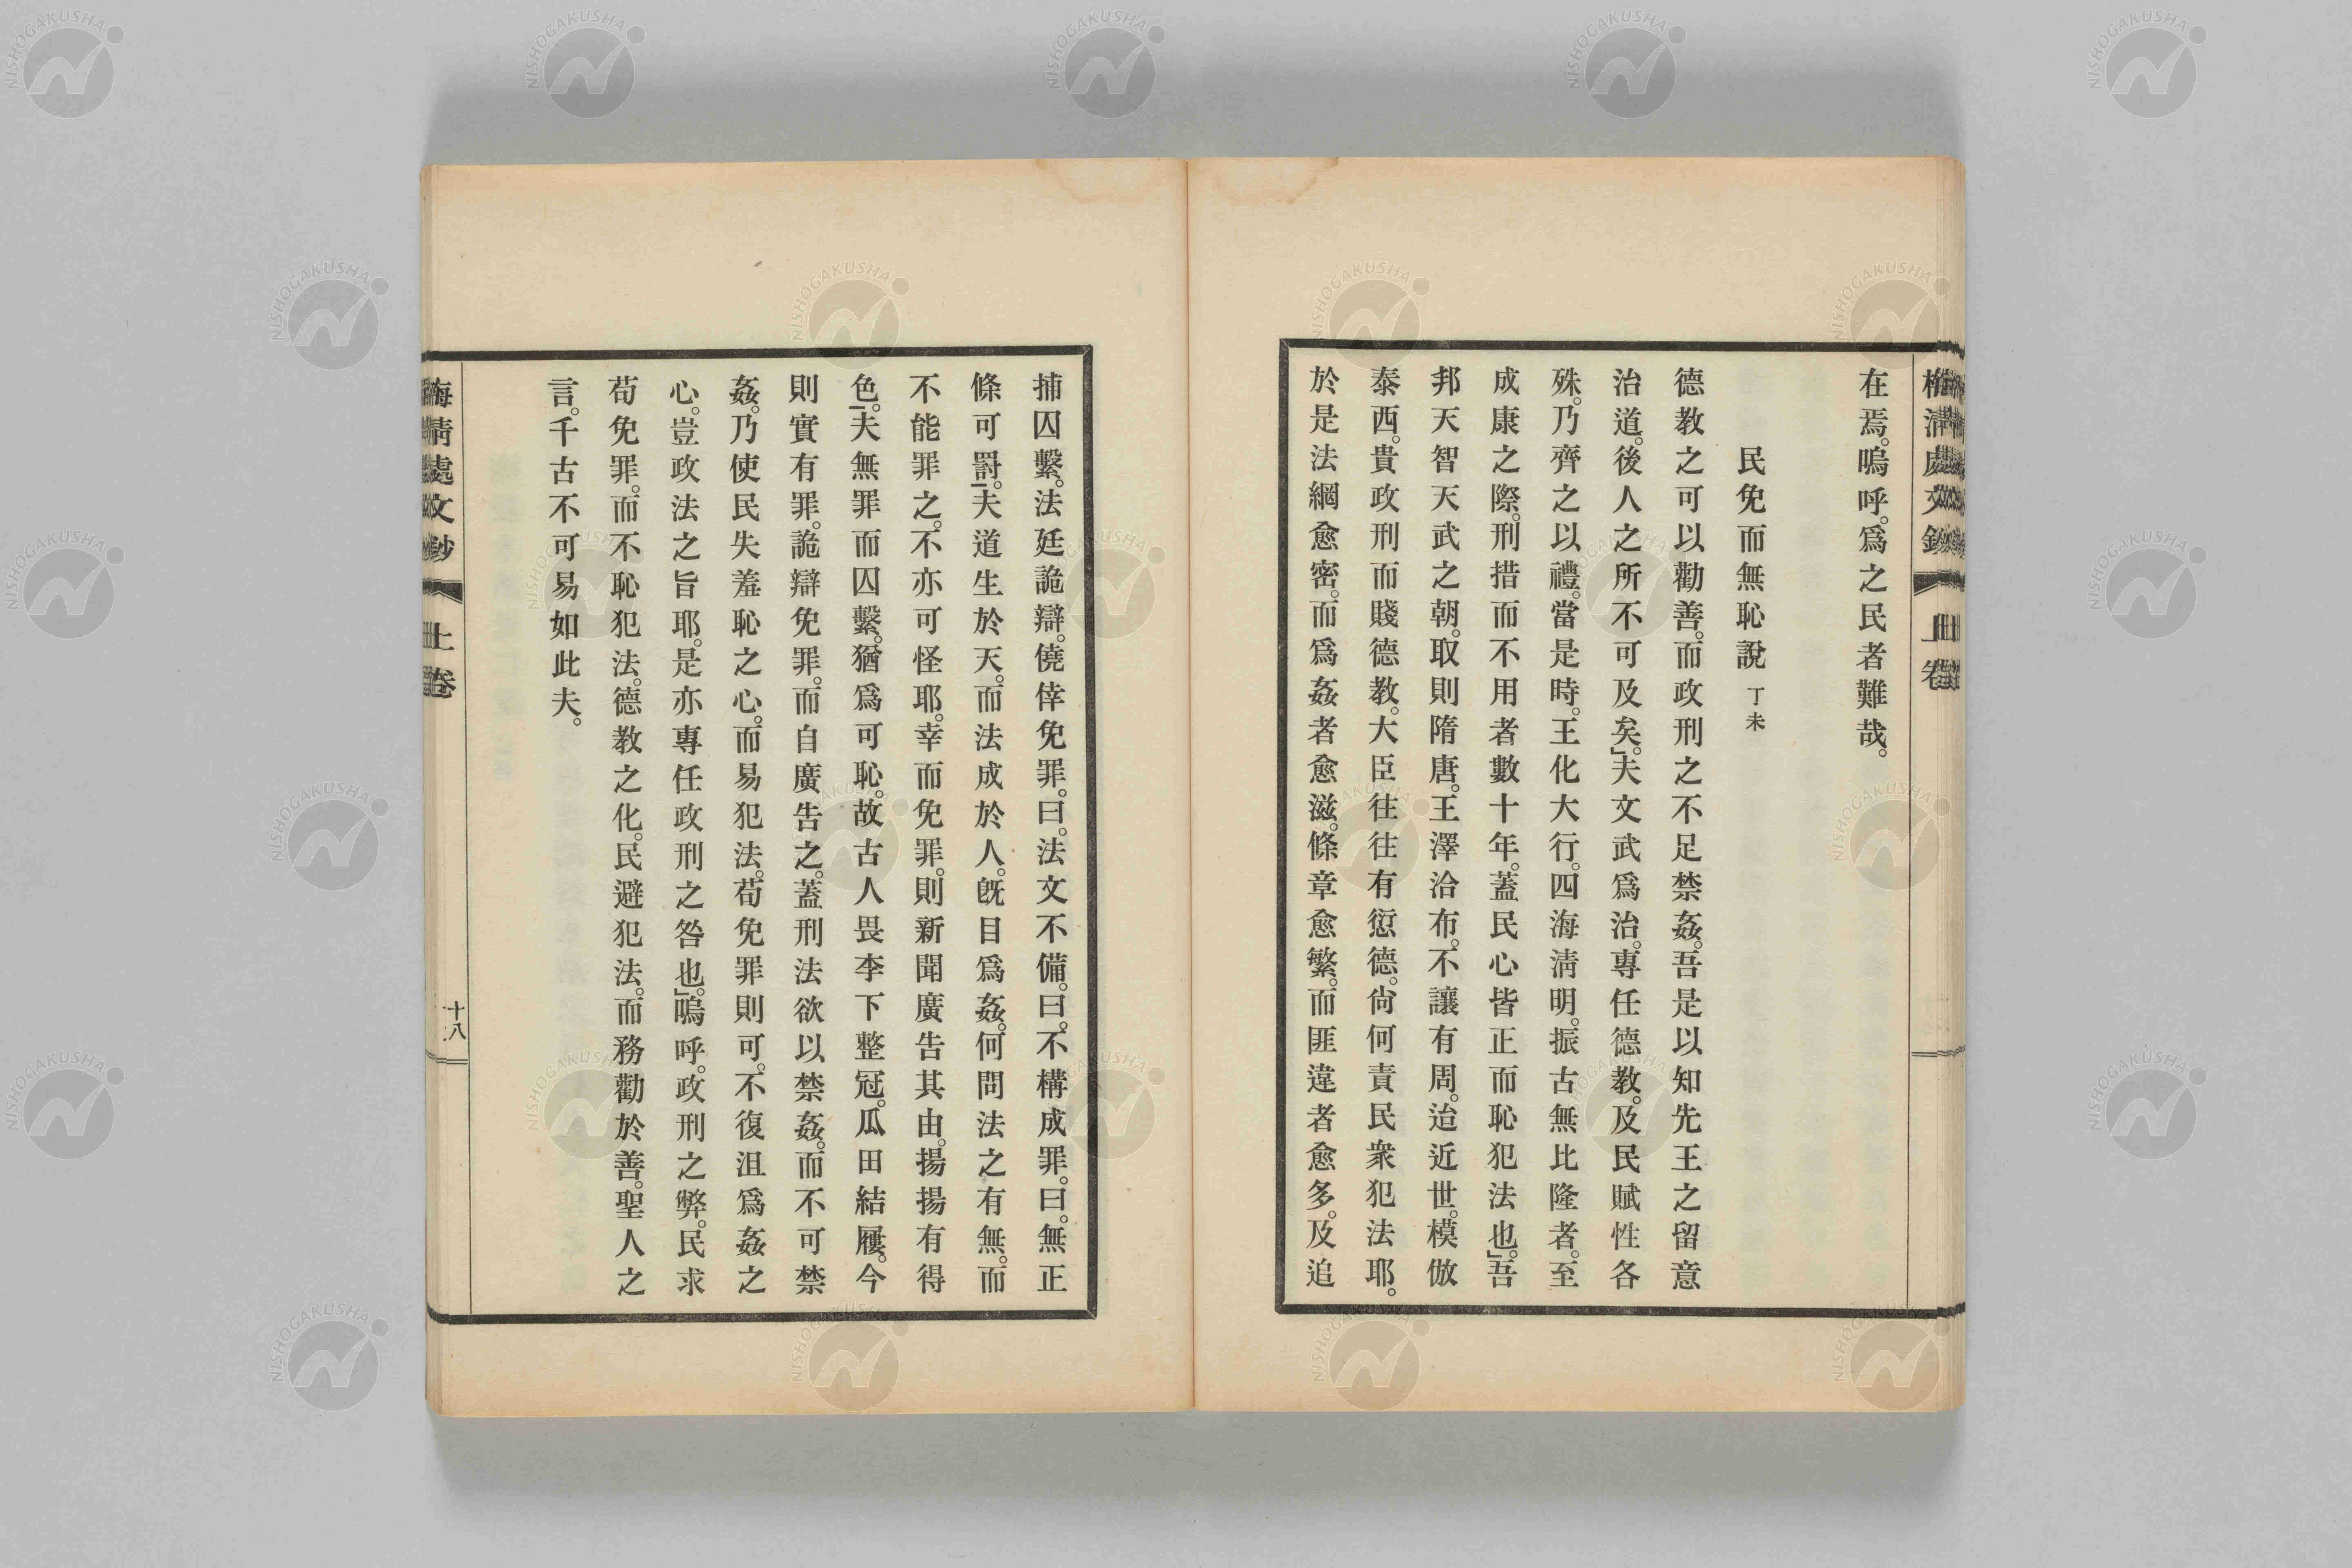 在焉。嗚呼。爲之民者難哉。
民免而無恥說 丁未
德教之可以勸善。而政刑之不足禁姦。吾是以知先王之留意
治道。後人之所不可及矣。」夫文武爲治。專任德教。及民賦性各
殊。乃齊之以禮。當是時。王化大行。四海淸明。振古無比隆者。至
成康之際。刑措而不用者數十年。蓋民心皆正而恥犯法也。」吾
邦天智天武之朝。取則隋唐。王澤洽布。不讓有周。迨近世。模倣
泰西。貴政刑而賤德教。大臣往往有愆德。尙何責民衆犯法耶。
於是法網愈密。而爲姦者愈滋。條章愈繁。而匪違者愈多。及追
捕囚繫。法廷詭辯。僥倖免罪。曰。法文不備。曰。不構成罪。曰。無正
條可罸。」夫道生於天。而法成於人。旣目爲姦。何問法之有無。而
不能罪之。不亦可怪耶。幸而免罪。則新聞廣告其由。揚揚有得
色。」夫無罪而囚繫。猶爲可恥。故古人畏李下整冠。瓜田結屨。今
則實有罪。詭辯免罪。而自廣告之。蓋刑法欲以禁姦。而不可禁
姦。乃使民失羞恥之心。而易犯法。苟免罪則可。不復沮爲姦之
心。豈政法之旨耶。是亦專任政刑之咎也。」嗚呼。政刑之弊。民求
苟免罪。而不恥犯法。德教之化。民避犯法。而務勸於善。聖人之
言。千古不可易如此夫。
梅清處文鈔 上卷 十八
NISHOGAKUSHA